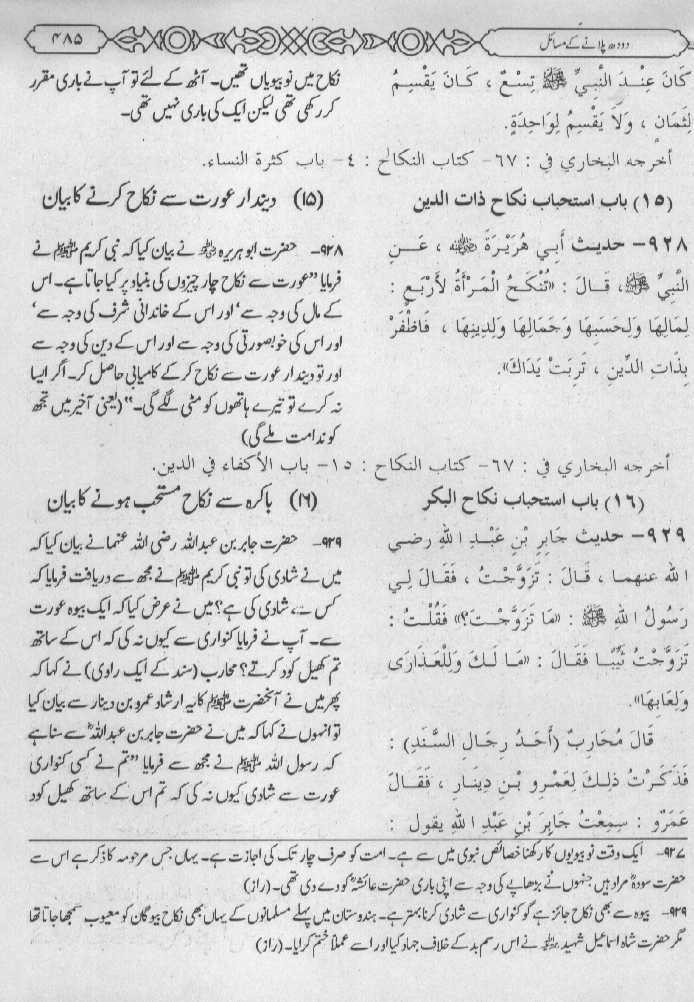 دودھ پلانے کے مسائل
۴۸۵
كَانَ عِنْدَ النَّبِيِّ ﷺ تِسْعٌ ، كَانَ يَقْسِمُ
لِثَمَانٍ ، وَلاَ يَقْسِمُ لِوَاحِدَةٍ.
نکاح میں نو بیویاں تھیں۔ آٹھ کے لئے تو آپ نے باری مقرر
کر رکھی تھی لیکن ایک کی باری نہیں تھی۔
أخرجه البخاري في : ٦٧- كتاب النكاح : ٤- باب كثرة النساء.
(١٥) باب استحباب نكاح ذات الدين
(۱۵) دیندار عورت سے نکاح کرنے کا بیان
٩٢٨- حديث أَبِي هُرَيْرَةَ ﷺ ، عَنِ
النَّبِيِّ ﷺ، قَالَ : «تُنْكَحُ الْمَرْأَةُ لأَرْبَعٍ :
لِمَالِهَا وَلِحَسَبِهَا وَجَمَالِهَا وَلِدِينِهَا ، فَاظْفَرْ
بِذَاتِ الدِّينِ ، تَرِبَتْ يَدَاكَ».
۹۲۸- حضرت ابو ہریرہ نے بیان کیا کہ نبی کریم ﷺ نے
فرمایا ”عورت سے نکاح چار چیزوں کی بنیاد پر کیا جاتا ہے۔ اس
کے مال کی وجہ سے‘ اور اس کے خاندانی شرف کی وجہ سے‘
اور اس کی خوبصورتی کی وجہ سے اور اس کے دین کی وجہ سے
اور تو دیندار عورت سے نکاح کر کے کامیابی حاصل کر۔ اگر ایسا
نہ کرے تو تیرے ہاتھوں کو مٹی لگے گی۔“ (یعنی آخیر میں تجھ
کو ندامت ملے گی)
أخرجه البخاري في : ٦٧- كتاب النكاح : ١٥- باب الأكفاء في الدين.
(١٦) باب استحباب نكاح البكر
(۱۶) باکرہ سے نکاح مستحب ہونے کا بیان
٩٢٩- حديث جَابِرِ بْنِ عَبْدِ اللهِ رضي
الله عنهما ، قَالَ : تَزَوَّجْتُ ، فَقَالَ لِي
رَسُولُ اللهِ ﷺ : «مَا تَزَوَّجْتَ؟» فَقُلْتُ :
تَزَوَّجْتُ ثَيِّبًا فَقَالَ : «مَا لَكَ وَلِلْعَذَارَى
وَلِعَابِهَا».
قَالَ مُحَارِبٌ (أَحَدُ رِجَالِ السَّنَدِ) :
فَذَكَرْتُ ذلِكَ لِعَمْرِو بْنِ دِينَارٍ ، فَقَالَ
عَمْرٌو : سَمِعْتُ جَابِرَ بْنَ عَبْدِ اللهِ يقول :
۹۲۹- حضرت جابر بن عبداللہ رضی اللہ عنہما نے بیان کیا کہ
میں نے شادی کی تو نبی کریم ﷺ نے مجھ سے دریافت فرمایا کہ
کس سے شادی کی ہے؟ میں نے عرض کیا کہ ایک بیوہ عورت
سے۔ آپ نے فرمایا کنواری سے کیوں نہ کی کہ اس کے ساتھ
تم کھیل کود کرتے؟ محارب (سند کے ایک راوی) نے کہا کہ
پھر میں نے آنحضرت ﷺ کا یہ ارشاد عمرو بن دینار سے بیان کیا
تو انہوں نے کہا کہ میں نے حضرت جابر بن عبداللہ سے سنا ہے
کہ رسول اللہ ﷺ نے مجھ سے فرمایا ”تم نے کسی کنواری
عورت سے شادی کیوں نہ کی کہ تم اس کے ساتھ کھیل کود
۹۲۷- ایک وقت نو بیویوں کا رکھنا خصائص نبوی میں سے ہے۔ امت کو صرف چار تک کی اجازت ہے۔ یہاں جس مرحومہ کا ذکر ہے اس سے
حضرت سودہؓ مراد ہیں جنہوں نے بڑھاپے کی وجہ سے اپنی باری حضرت عائشہؓ کو دے دی تھی۔ (راز)
۹۲۹- بیوہ سے بھی نکاح جائز ہے گو کنواری سے شادی کرنا بہتر ہے۔ ہندوستان میں پہلے مسلمانوں کے یہاں بھی نکاح بیوگان کو معیوب سمجھا جاتا تھا
مگر حضرت شاہ اسماعیل شہید نے اس رسم بد کے خلاف جہاد کیا اور اسے عملاً ختم کرایا۔ (راز)